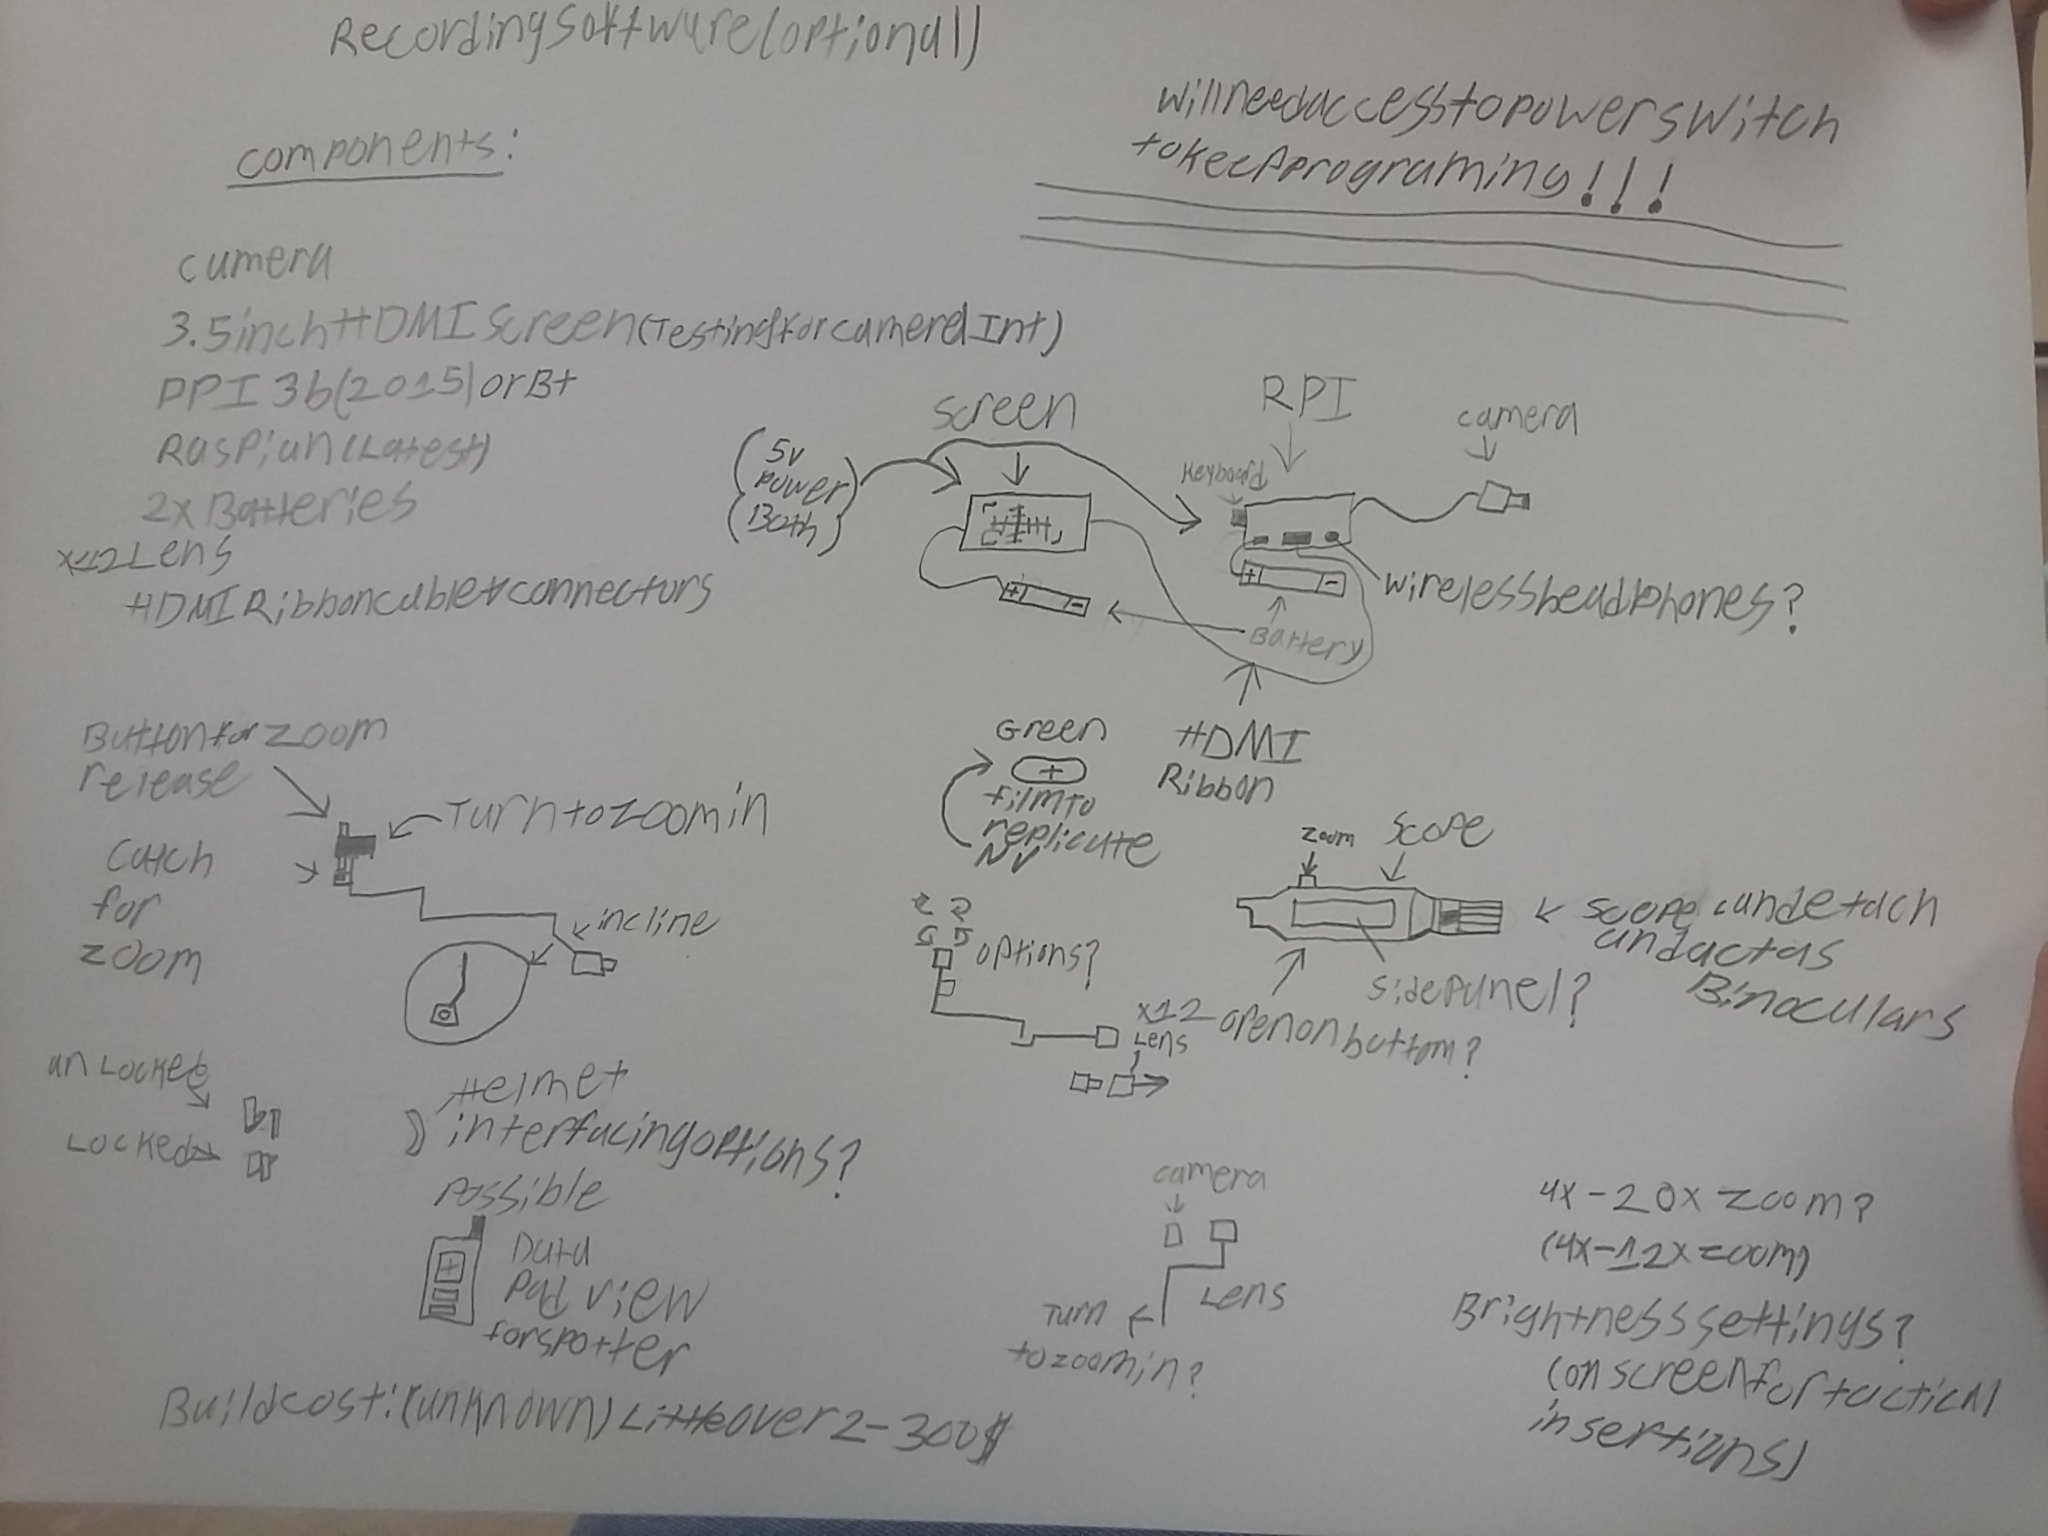 Recording software (optional)
will need access to power switch
to keep programing!!!
components:
camera
3.5 inch HDMI screen (Testing for camera Int)
RPI 3b (2015) or B+
Raspian (Latest)
2x Batteries
x12 Lens
HDMI Ribbon cable + connectors
screen
RPI
camera
keyboard
(5v
power
(Both)
wireless headphones?
Battery
HDMI
Ribbon
Green
film to
replicate
NV
Button for zoom
release
Turn to zoom in
catch
for
zoom
incline
unlocked
locked
Helmet
interfacing options?
options?
x12
Lens
zoom
scope
scope can detach
and act as
Binoculars
side panel?
open on buttom?
possible
Data
pad view
for spotter
camera
Lens
Turn
to zoom in?
4x-20x zoom?
(4x-12x zoom)
Brightness settings?
(on screen for tactical
insertions)
Build cost: (unknown) Little over 2-300$